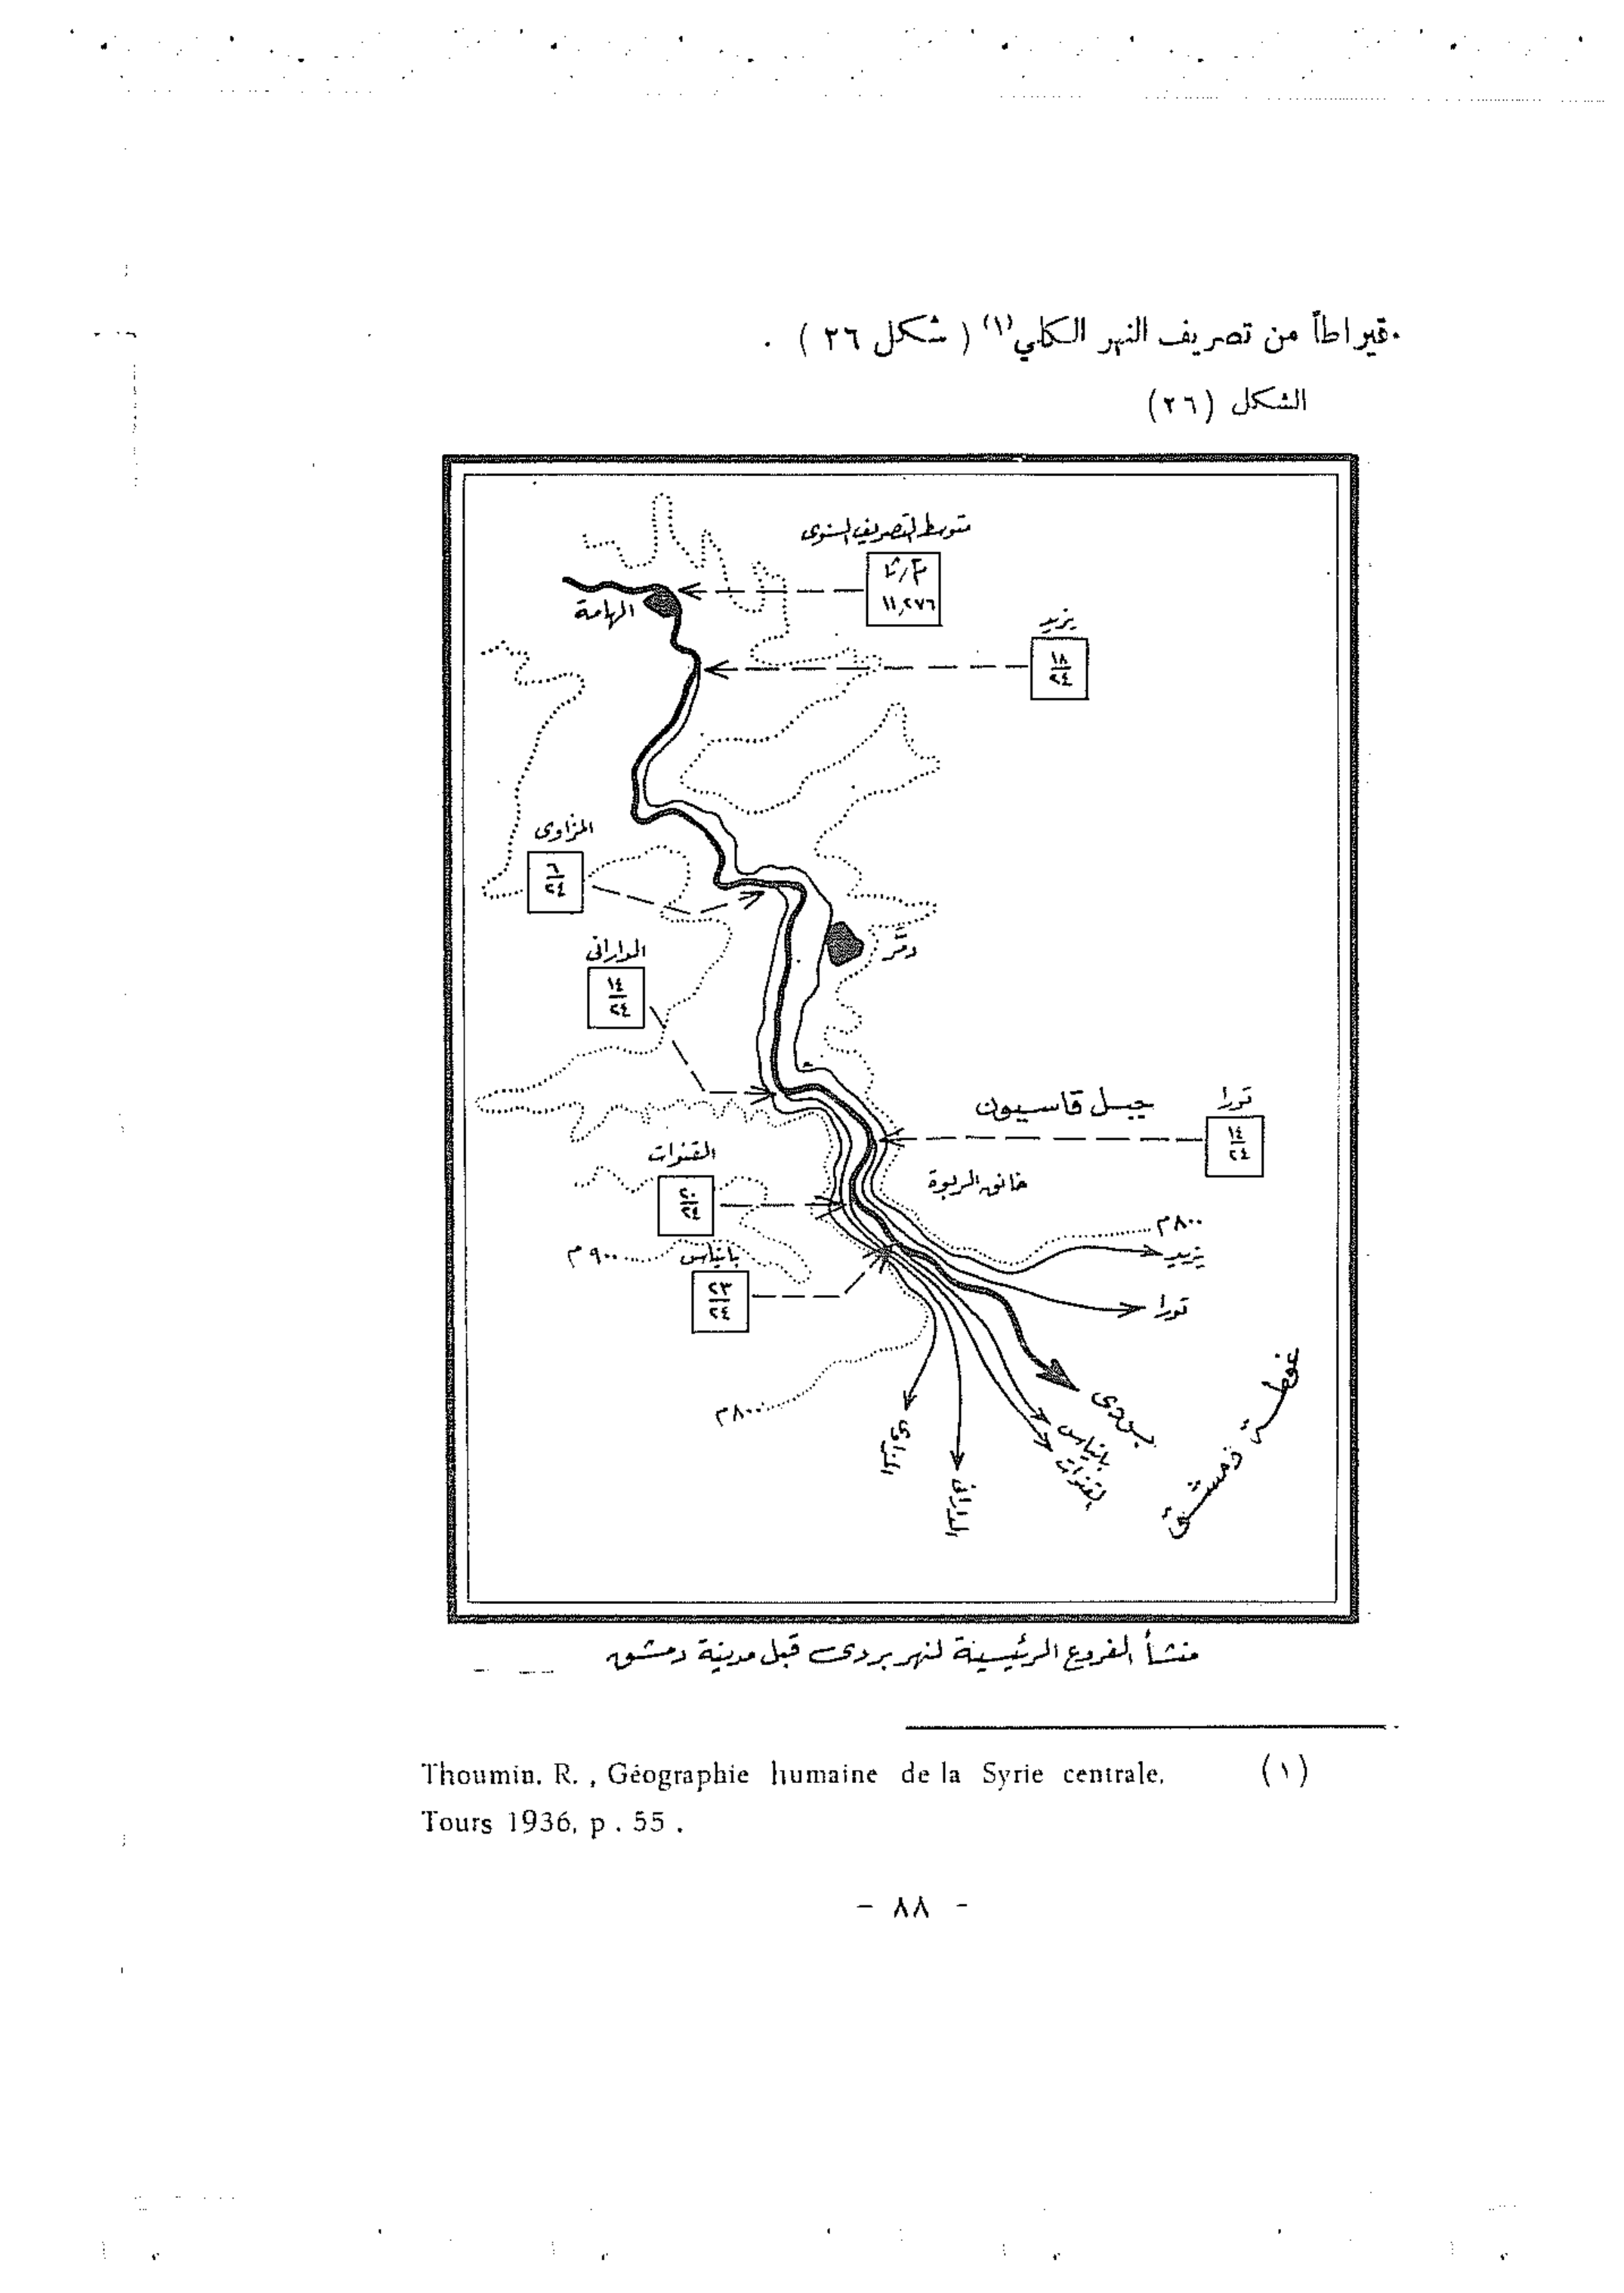 قيراطاً من تصريف النهر الكلي(١) ( شكل ٢٦ ) .
الشكل (٢٦)
متوسط التصريف السنوى
م٣/ث
١١,٢٧٦
الهامة
يزيد
١٨
٢٤
المزاوى
٦
٢٤
دمّر
الداراني
١٤
٢٤
جبل قاسيون
تورا
١٤
٢٤
القنوات
٢٠
٢٤
خانق الربوة
٨٠٠م
يزيد
٩٠٠م
بانياس
٢٣
٢٤
تورا
٨٠٠م
بردى
بانياس
القنوات
الداراني
المزاوي
غوطة دمشق
منشأ الفروع الرئيسية لنهر بردى قبل مدينة دمشق
(١) Thoumin. R. , Géographie humaine de la Syrie centrale,
Tours 1936, p . 55 .
- ٨٨ -